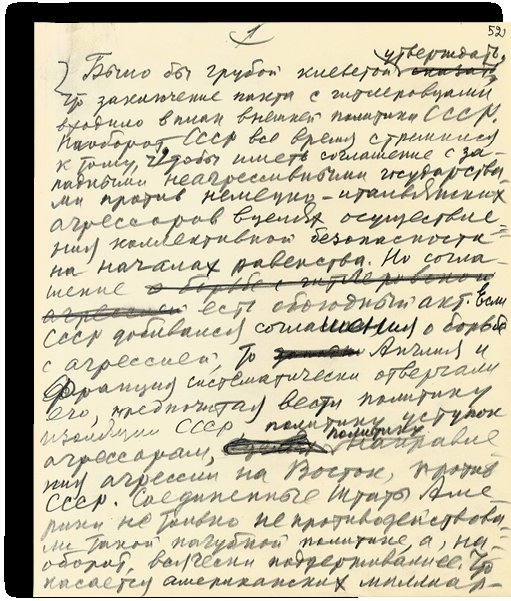 1
52
утверждать,
) Было бы грубой клеветой сказать,
что заключение пакта с гитлеровцами
входило в план внешней политики СССР.
Наоборот, СССР все время стремился
к тому, чтобы иметь соглашение с за-
падными неагрессивными государства-
ми против немецко-итальянских
агрессоров в целях осуществле-
ния коллективной безопасности
на началах равенства. Но согла-
шение о борьбе с гитлеровской
агрессией есть обоюдный акт. Если
СССР добивался соглашения о борьбе
с агрессией, то Англия и
Франция систематически отвергали
его, предпочитая вести политику
изоляции СССР, политику уступок
агрессорам, политику направле-
ния агрессии на Восток, против
СССР. Соединенные Штаты Аме-
рики не только не противодействова-
ли такой пагубной политике, а, на-
оборот, всячески поддерживали ее. Что
касается американских миллиар-